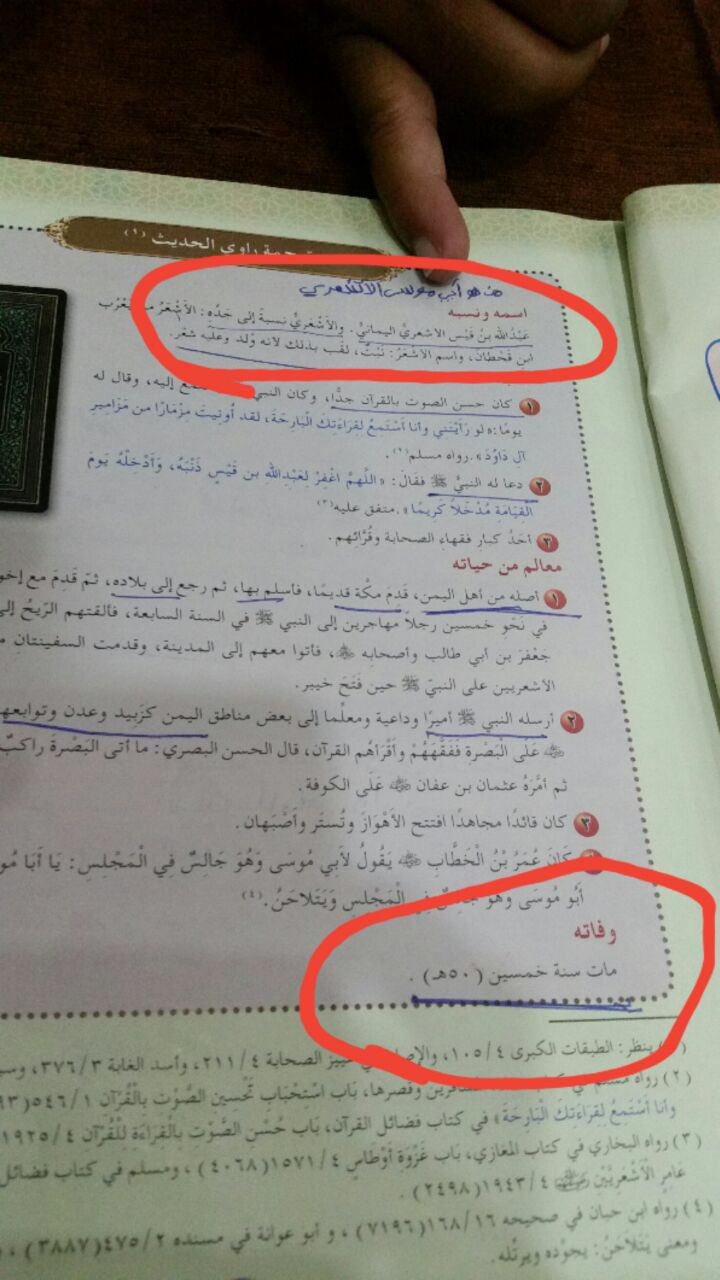 ترجمة راوي الحديث (١)
هو أبي موسى الأشعري
اسمه ونسبه
عَبْدُالله بنُ قَيْس الأشعريُّ اليمانيُّ. والأَشْعَرِيُّ نسبةً إلى جَدّه: الأَشْعَرُ يَعْرُب
ابن قَحْطَان، واسم الأشعَرُ: نَبْتُ، لقِّب بذلك لأنه وُلد وعليه شعْر.
١ كان حسن الصوت بالقرآن جدًّا، وكان النبي إليه، وقال له
يومًا: «لو رَأَيْتَني وأنا أَسْتَمِعُ لِقِرَاءَتكَ الْبَارِحَةَ، لقد أُوتِيتَ مِزْمَارًا من مَزَامِيرِ
آلِ دَاوُدَ».رواه مسلم(٢).
٢ دعا له النبيُّ ﷺ فقالَ: «اللَّهمَّ اغْفرْ لِعَبْدِالله بن قَيْسٍ ذَنْبَهُ، وَأَدْخِلْهُ يَومَ
الْقِيَامَةِ مُدْخَلاً كَرِيمًا».متفق عليه(٣)
٣ أحَدُ كبارِ فقهاء الصحابة وقُرَّائهم.
معالم من حياته
١ أصله من أهل اليمن، قَدِمَ مكّة قديمًا، فأسلم بها، ثم رجع إلى بلاده، ثمّ قَدِمَ مع
في نَحْو خمسين رجلاً مهاجرين إلى النبي ﷺ في السنة السابعة، فألقتهم الرِّيحُ
جَعْفرَ بن أبي طالب وأصحابه ﷺ، فأتوا معهم إلى المدينة، وقدمت السفينتانِ
الأشعريين على النبيّ ﷺ حين فَتَحَ خيبر.
٢ أرسله النبي ﷺ أميرًا وداعية ومعلّما إلى بعض مناطق اليمن كزَبِيد وعدن
عَلَى الْبَصْرةِ فَفَقَّهَهُمْ وأَقْرَأهُم القرآن، قال الحسن البصري: ما أتى البَصْرةَ راكبٌ
ثم أمَّرَهُ عثمان بن عفان عَلَى الكوفة.
٣ كان قائدًا مجاهدًا افتتح الأَهْوَازَ وتُستَر وأَصْبَهان.
كَانَ عُمَرُ بْنُ الْخَطَّابِ يَقُولُ لأَبي مُوسَى وَهُوَ جَالِسٌ فِي الْمَجْلِسِ: يَا أَبَا
أَبُو مُوسَى وَهُوَ جَالِسٌ فِي الْمَجْلِسِ وَيَتَلَاحَنُ.(٤)
وفاته
مات سنة خمسين (٥٠هـ).
ينظر: الطبقات الكبرى ١٠٥/٤، تمييز الصحابة ٢١١/٤، وأسد الغابة ٣٧٦/٣،
(٢) رواه مسلم في المسافرين وقصرها، بَاب اسْتِحْبَابِ تَحْسين الصَّوْت بِالْقُرْآنِ ٥٤٦/١
وأنا أَسْتَمِعُ لِقِرَاءَتكَ الْبَارِحَةَ» في كتاب فضائل القرآن، بَاب حُسْنِ الصَّوْتِ بِالْقِرَاءَةِ لِلْقُرْآنِ ١٩٢٥/٤
(٣) رواه البخاري في كتاب المغازي، بَاب غَزْوَةِ أَوْطَاسٍ ١٥٧١/٤(٤٠٦٨)، ومسلم في كتاب
عامِرٍ الأَشْعَرِيَّيْنِ ١٩٤٣/٤(٢٤٩٨).
(٤) رواه ابن حبان في صحيحه ١٦٨/١٦(٧١٩٦)، و أبو عوانة في مسنده ٤٧٥/٢(٣٨٨٧)،
ومعنى يَتَلاَحَنُ: يجوِّده ويرتِّله.